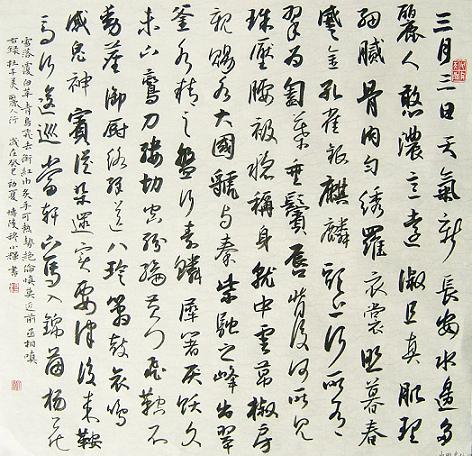 三月三日天氣新長安水邊多
麗人態濃意遠淑且真肌理
細膩骨肉勻綉羅衣裳照暮春
蹙金孔雀銀麒麟頭上何所有
翠為匎葉垂鬢唇背後何所見
珠壓腰衱穩稱身就中雲幕椒房
親賜名大國虢與秦紫駝之峰出翠
釜水精之盤行素鱗犀箸厭飫久
未下鸞刀縷切空紛綸黃門飛鞚不
動塵御廚絡繹送八珍簫鼓哀鳴
感鬼神賓從雜遝實要津後來鞍
馬何逡巡當軒下馬入錦茵楊花
雪落覆白蘋青鳥飛去銜紅巾炙手可熱勢絕倫慎莫近前丞相嗔
右錄杜子美麗人行 歲在癸巳初夏 博陵 小輝書